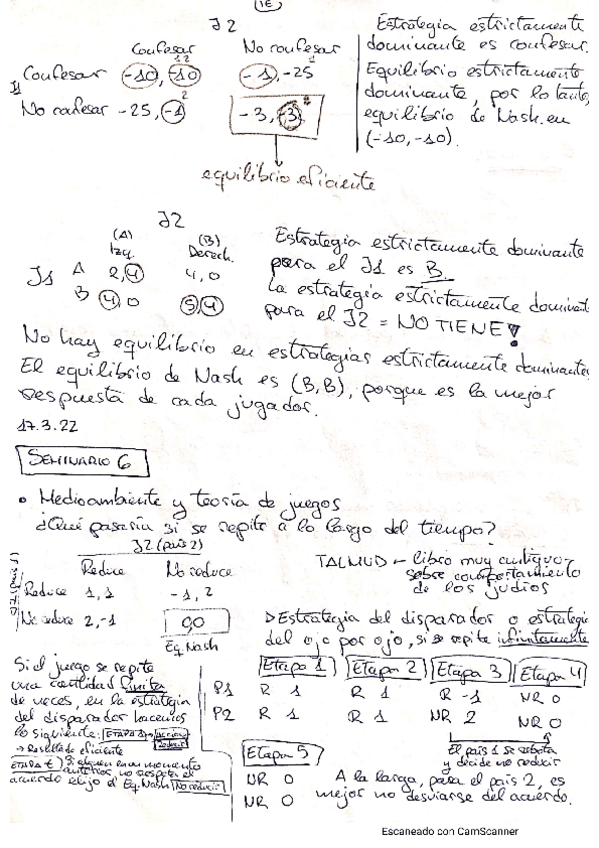 1E
J2
Confesar No confesar
J1 Confesar -10, -10 -1, -25
No confesar -25, -1 -3, -3
equilibrio eficiente
Estrategia estrictamente
dominante es confesar.
Equilibrio estrictamente
dominante, por lo tanto,
equilibrio de Nash en
(-10, -10).
J2
(A) (B)
Izq. Derech.
J1 A 2,4 4,0
B 4,0 5,4
Estrategia estrictamente dominante
para el J1 es B.
La estrategia estrictamente dominant
para el J2 = NO TIENE!
No hay equilibrio en estrategias estrictamente dominantes
El equilibrio de Nash es (B,B), porque es la mejor
respuesta de cada jugador.
17.3.22
SEMINARIO 6
• Medioambiente y teoría de juegos
¿Qué pasaría si se repite a lo largo del tiempo?
J2 (país 2)
Reduce No reduce
J1 (país 1)
Reduce 1,1 -1,2
No reduce 2,-1 0,0
Eq. Nash
TALMUD - libro muy antiguo
sobre comportamiento
de los judíos
Estrategia del disparador o estrategia
del ojo por ojo, si se repite infinitamente
Etapa 1 Etapa 2 Etapa 3 Etapa 4
P1 R 1 R 1 R -1 NR 0
P2 R 1 R 1 NR 2 NR 0
El país 1 se
y decide no reducir
Etapa 5
NR 0
NR 0
A la larga, para el país 2, es
mejor no desviarse del acuerdo.
Si el juego se repite
una cantidad finita
de veces, en la estrategia
del disparador hacemos
lo siguiente: ETAPA 1 → acción
reducir
→ Resultado eficiente
ETAPA t) Si alguien en un momento
anterior no respeta el
acuerdo elijo el Eq. Nash No reducir
Escaneado con CamScanner